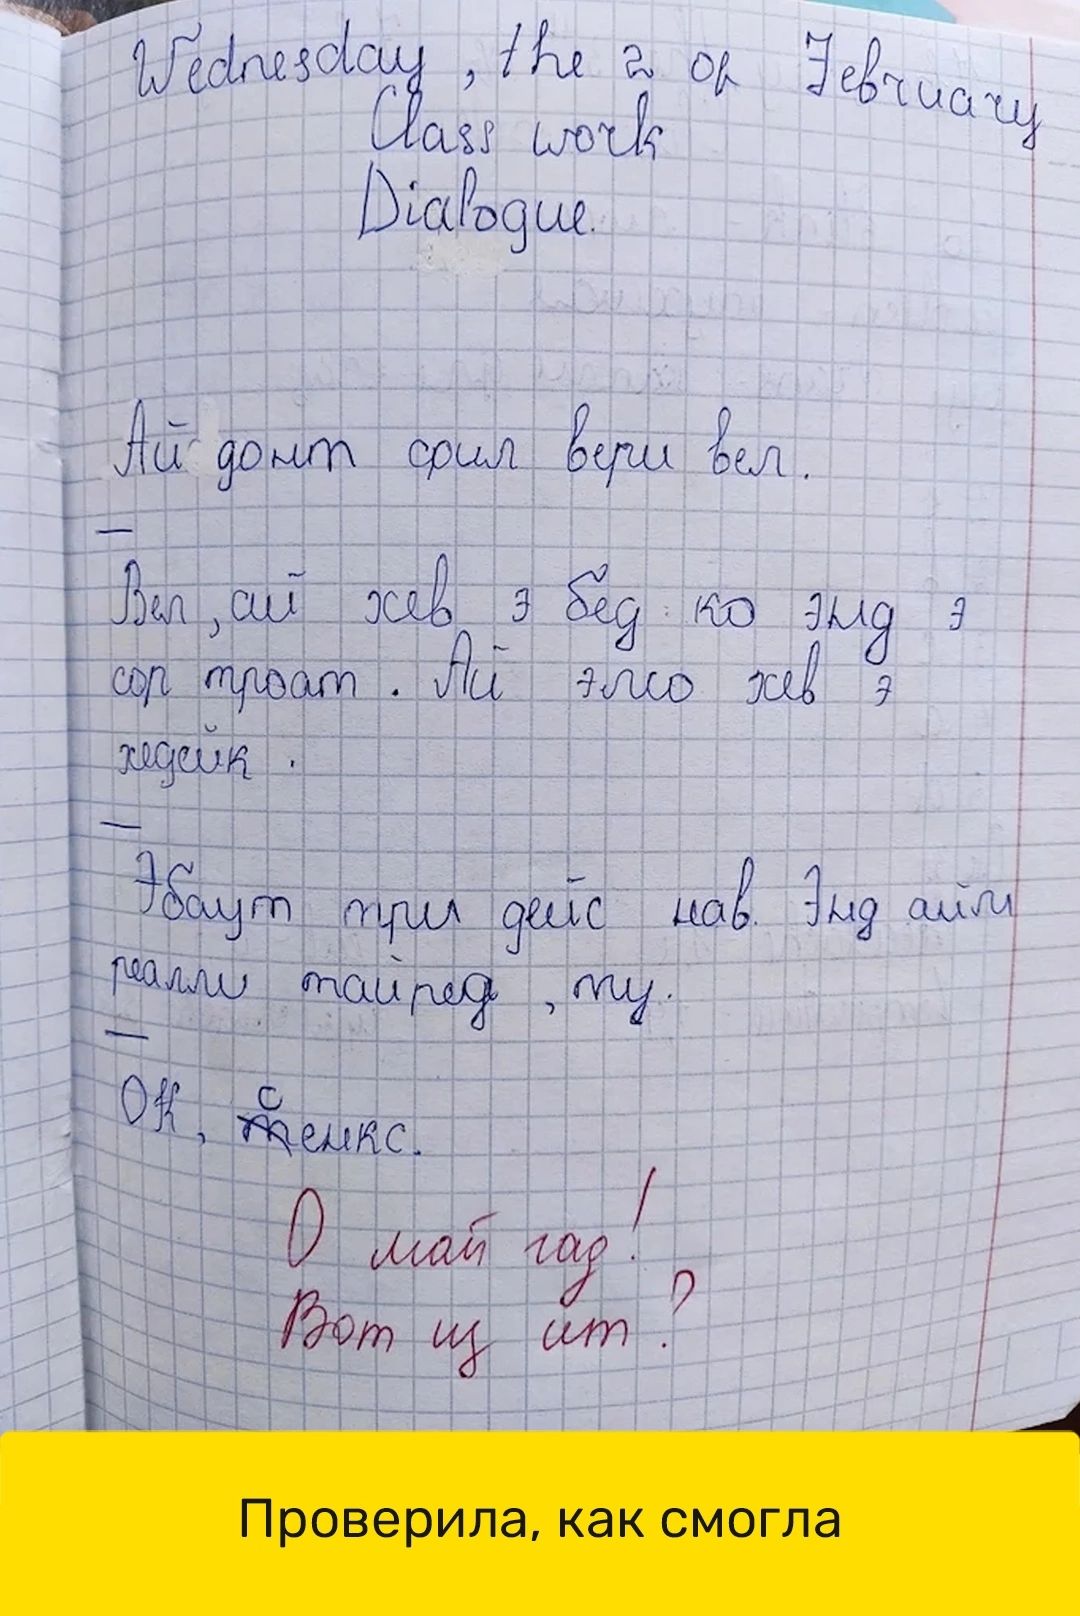 Wednesday, the 2 of February
Class work
Dialogue.
Ай донт фил вери вел.
—
Вел, ай хев э бед ко энд э
сор троат. Ай элсо хев э
хедейк.
—
Эбаут три дейс нав. Энд айм
реалли тайред, ту.
—
ОК, сенкс.
О май гад!
Вот из ит?
Проверила, как смогла